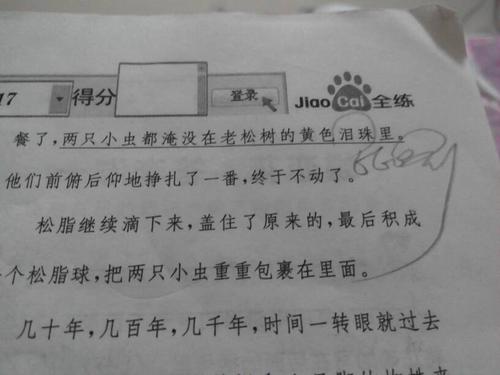 17 得分 登录 JiaoCai全练
餐了,两只小虫都淹没在老松树的黄色泪珠里。
他们前俯后仰地挣扎了一番,终于不动了。
松脂继续滴下来,盖住了原来的,最后积成
个松脂球,把两只小虫重重包裹在里面。
几十年,几百年,几千年,时间一转眼就过去